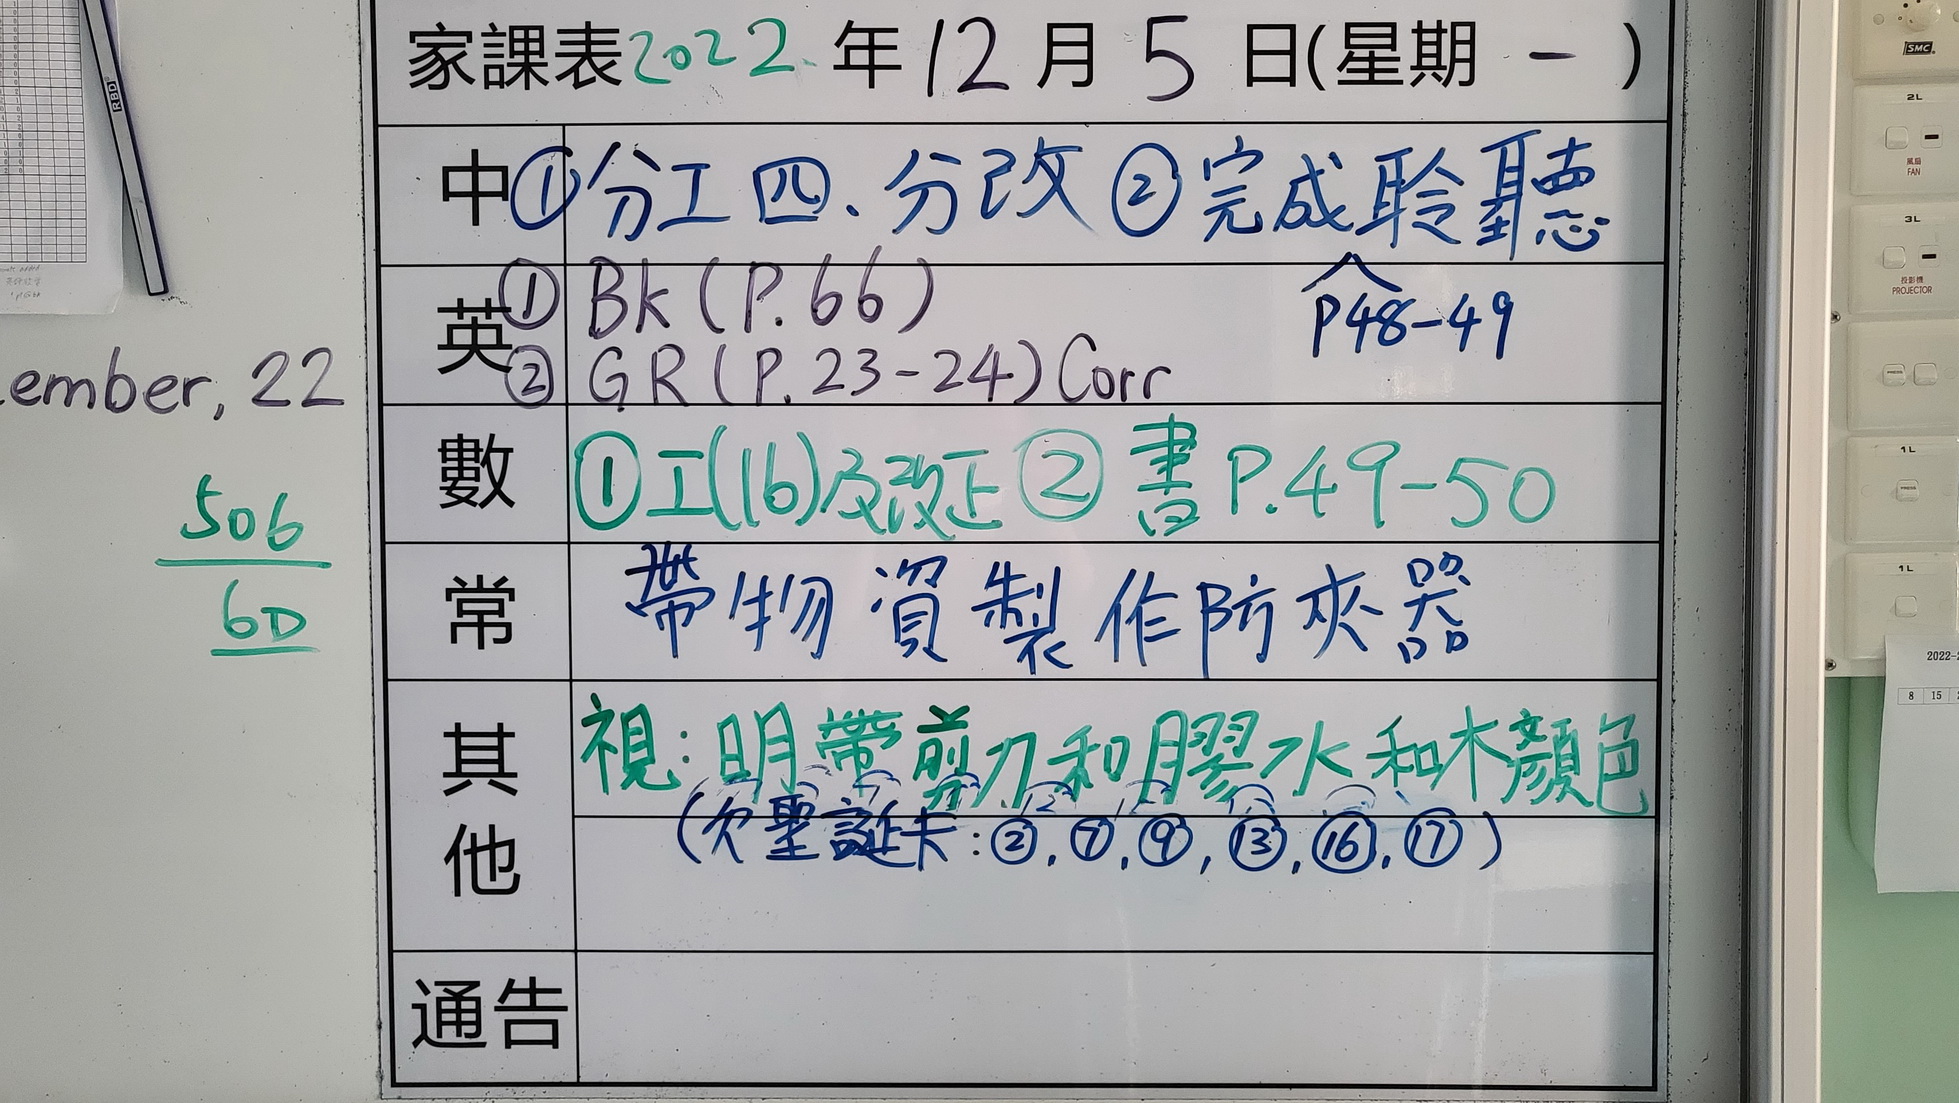 家課表2022年12月5日(星期一)
中 ①分工四、分改 ②完成聆聽
P48-49
英 ① Bk (P.66)
② GR (P.23-24) Corr
數 ①工(16)及改正 ② 書P.49-50
常 帶物資製作防夾器
其他 視:明帶剪刀和膠水和木顏色
(欠聖誕卡:②,⑦,⑨,⑬,⑯,⑰)
通告
ember, 22
506
60
RBD
SMC
2L
風扇
FAN
3L
投影機
PROJECTOR
PRESS
1L
PRESS
1L
2022-2
8 15